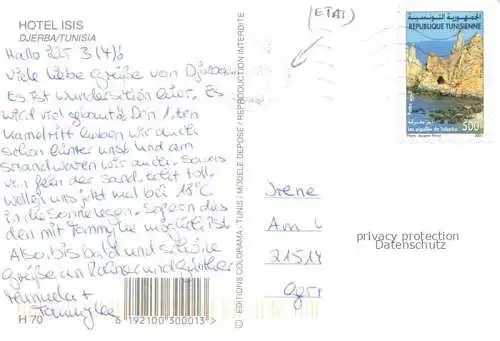 HOTEL ISIS
DJERBA/TUNISIA
Hallo 3 (4)!
Viele liebe Grüße von Djerba
Es ist wunderschön hier. Es
wird viel gebaut. Den 1. ten
Kamelritt haben wir auch
schon hinter uns und am
Strand waren wir auch.
der Sand, echt toll.
Wollen uns jetzt mal bei 18°C
in die Sonne legen. Sofern das
den mit Tammylee möglich ist.
Also, bis bald und schöne
Grüße an Rainer und Günther
Manuela +
Tammylee
H 70
6 192100 300013 >
© EDITIONS COLORAMA - TUNIS / MODELE DEPOSE / REPRODUCTION INTERDITE
(ETAT)
الجمهورية التونسية
REPUBLIQUE TUNISIENNE
500
Les aiguilles de Tabarka
Irene
Am
21514
privacy protection
Datenschutz